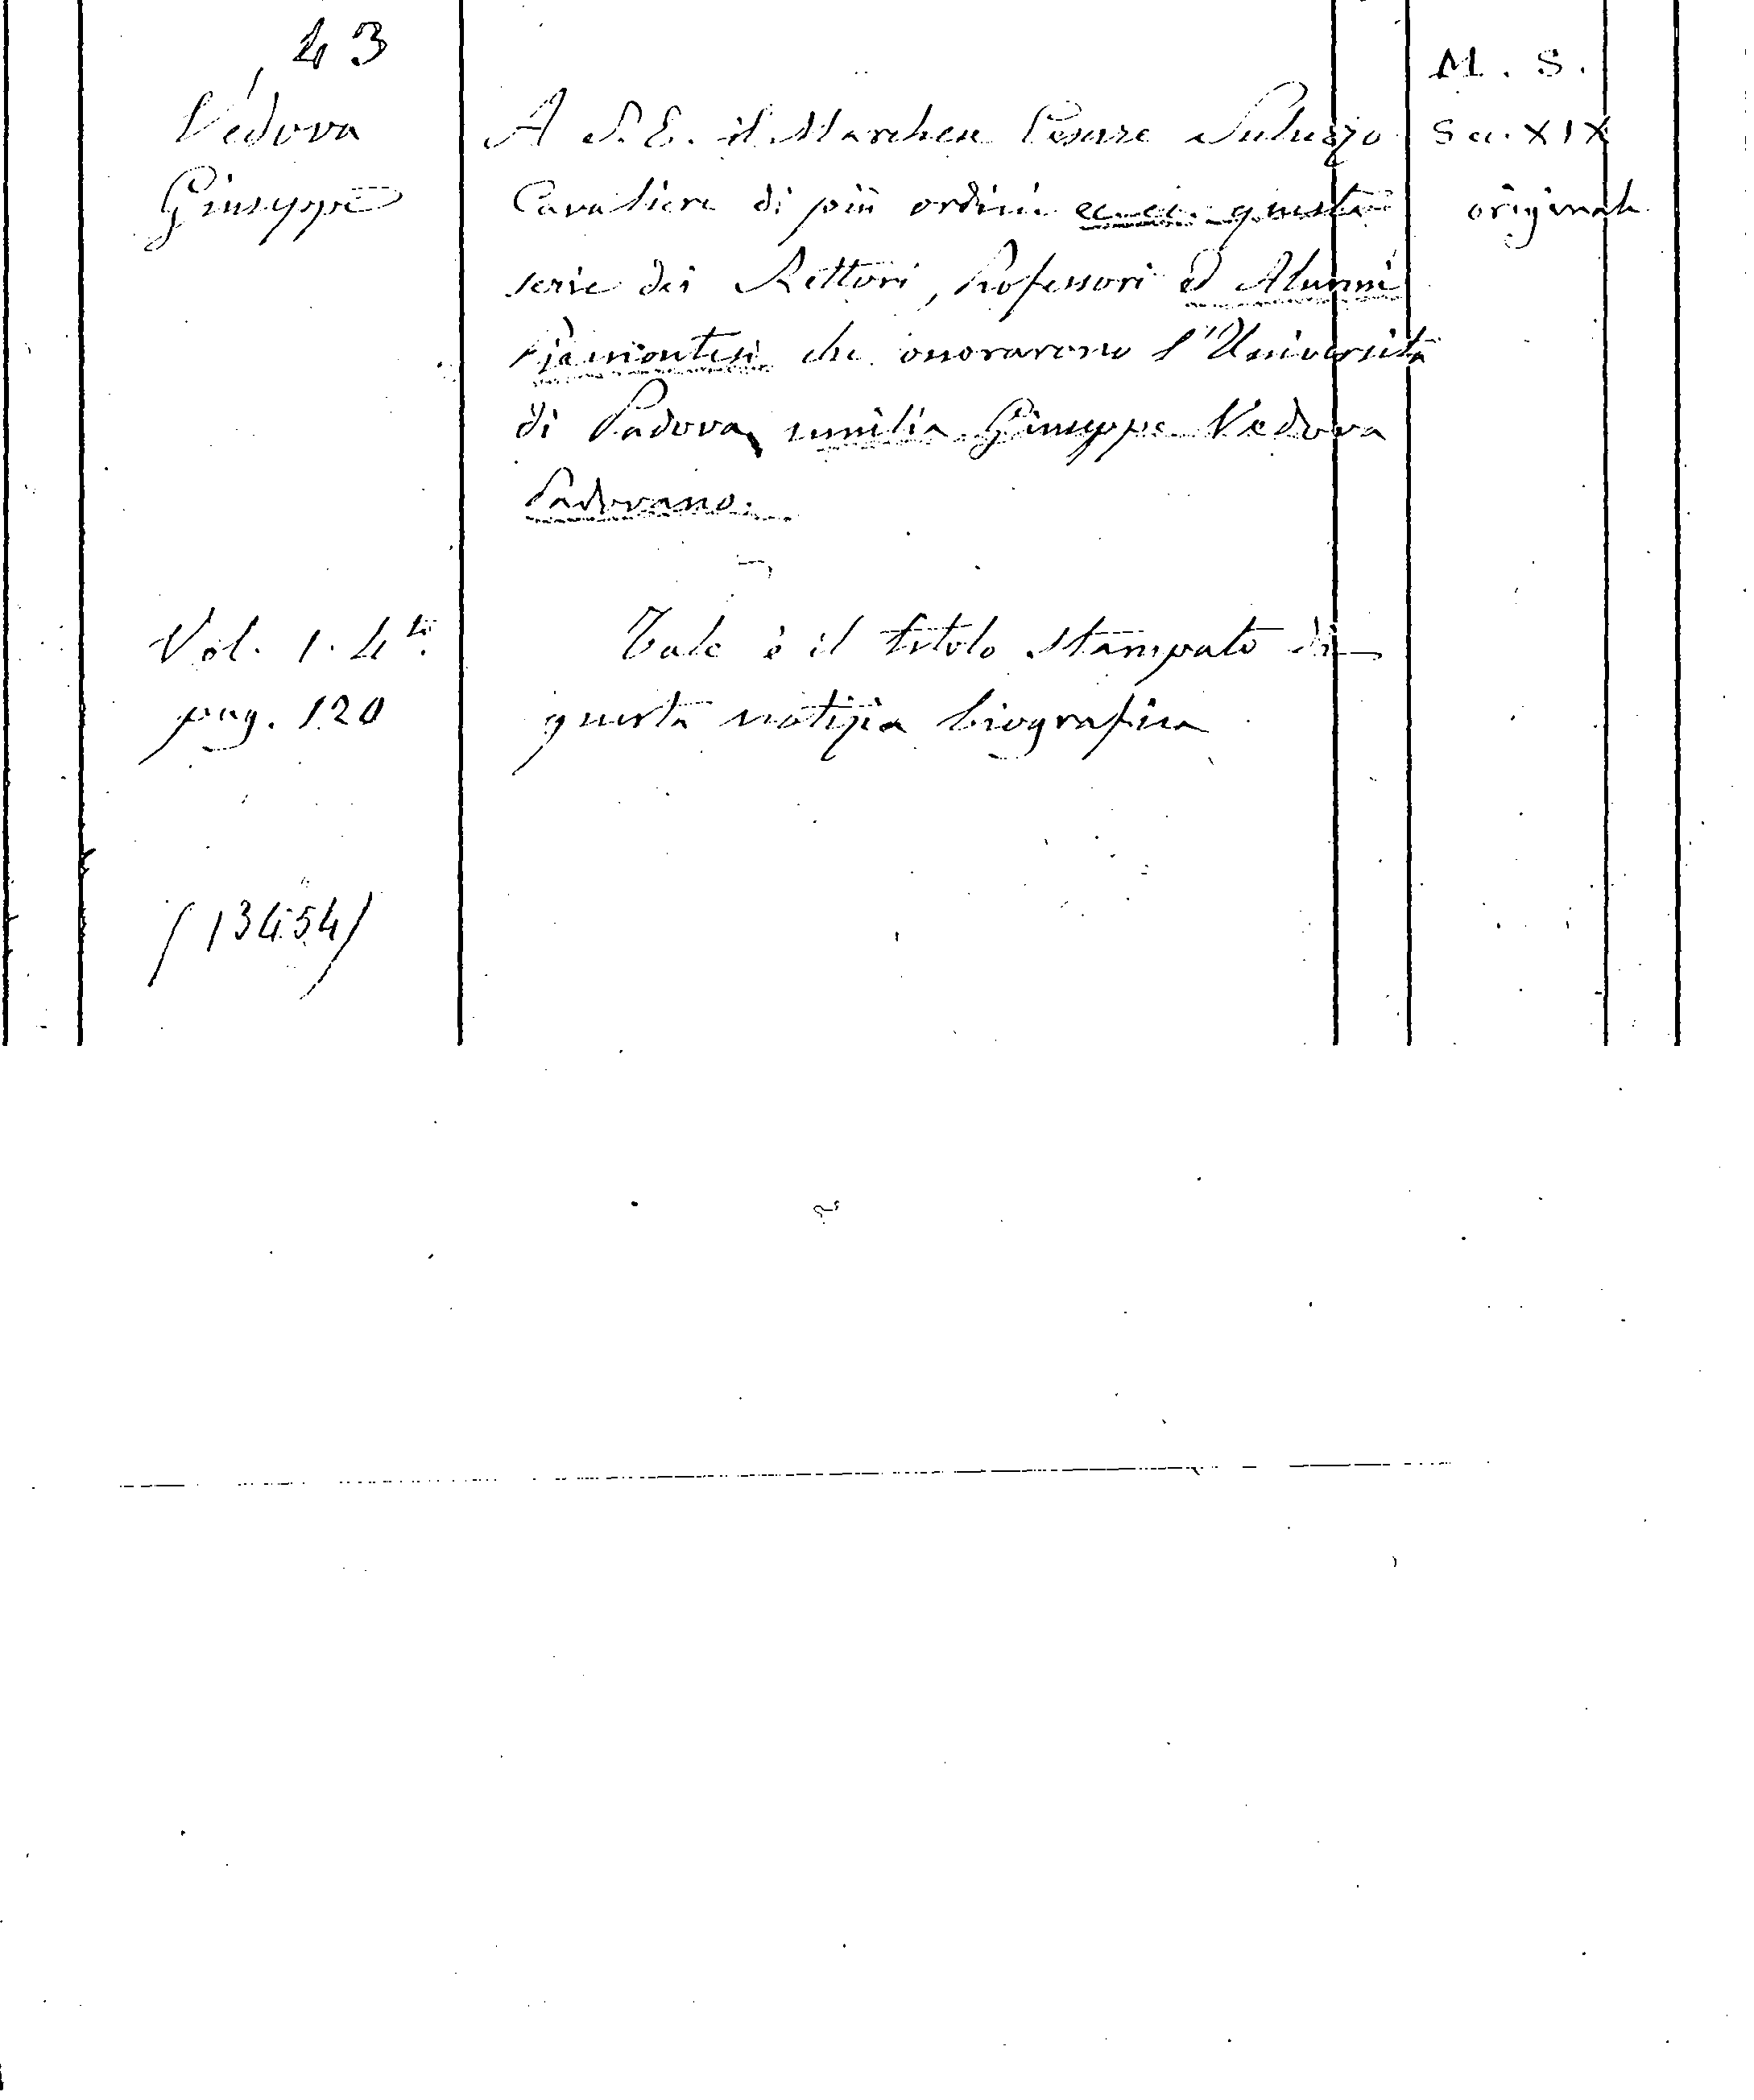 43
Vedova
Giuseppe
A S. E. il Marchese Cesare Saluzzo
Cavaliere di più ordini ec. ec. questa
serie dei Rettori, Professori ed Alunni
Piemontesi che onorarono l'Università
di Padova, umilia Giuseppe Vedova
Padovano.
M. S.
Sec. XIX
originale
Vol. 1. 4to
pag. 120
Tale è il titolo stampato di
questa notizia biografica
(13454)